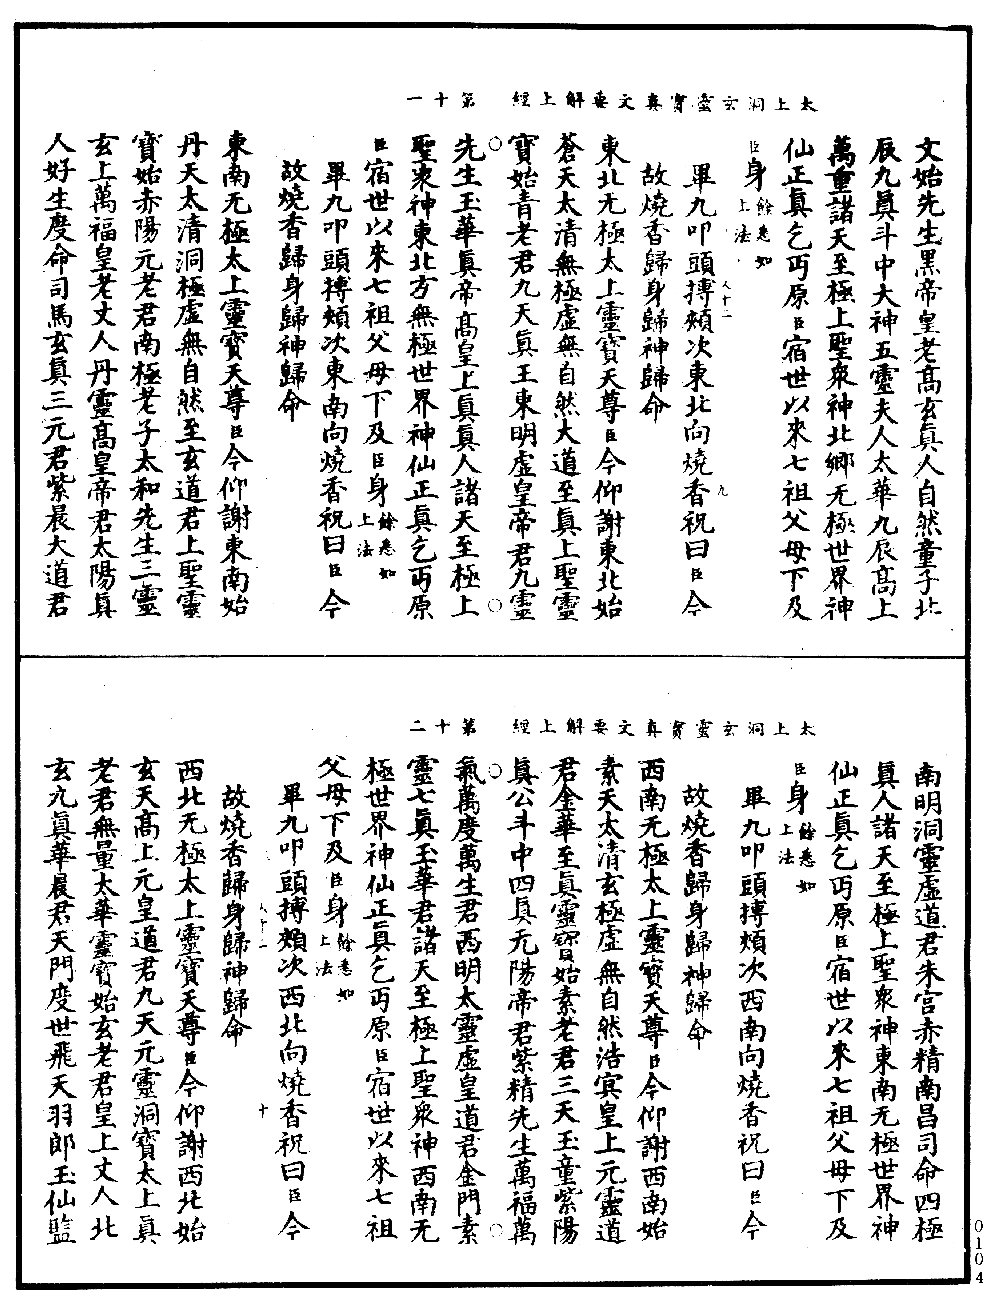 太上洞玄靈寶真文要解上經　第十一
文始先生黑帝皇老高玄真人自然童子北
辰九真斗中大神五靈夫人太華九辰高上
萬重諸天至極上聖衆神北鄉无極世界神
仙正真乞丐原臣宿世以来七祖父母下及
臣身餘悉如上法
畢九叩頭搏頰次東北向燒香祝曰臣今
故燒香歸身歸神歸命
東北无極太上靈寶天尊臣今仰謝東北始
蒼天太清無極虛無自然大道至真上聖靈
寶始青老君九天真王東明虛皇帝君九靈
先生玉華真帝高皇上真真人諸天至極上
聖衆神東北方無極世界神仙正真乞丐原
臣宿世以来七祖父母下及臣身餘悉如上法
畢九叩頭搏頰次東南向燒香祝曰臣今
故燒香歸身歸神歸命
東南无極太上靈寶天尊臣今仰謝東南始
丹天太清洞極虛無自然至玄道君上聖靈
寶始赤陽元老君南極老子太和先生三靈
玄上萬福皇老丈人丹靈高皇帝君太陽真
人好生度命司馬玄真三元君紫晨大道君
太上洞玄靈寶真文要解上經　第十二
南明洞靈虛道君朱宮赤精南昌司命四極
真人諸天至極上聖衆神東南无極世界神
仙正真乞丐原臣宿世以来七祖父母下及
臣身餘悉如上法
畢九叩頭搏頰次西南向燒香祝曰臣今
故燒香歸身歸神歸命
西南无極太上靈寶天尊臣今仰謝西南始
素天太清玄極虛無自然浩冥皇上元靈道
君金華至真靈寶始素老君三天玉童紫陽
真公斗中四真无陽帝君紫精先生萬福萬
氣萬度萬生君西明太靈虛皇道君金門素
靈七真玉華君諸天至極上聖衆神西南无
極世界神仙正真乞丐原臣宿世以来七祖
父母下及臣身餘悉如上法
畢九叩頭搏頰次西北向燒香祝曰臣今
故燒香歸身歸神歸命
西北无極太上靈寶天尊臣今仰謝西北始
玄天高上元皇道君九天元靈洞寶太上真
老君無量太華靈寶始玄老君皇上丈人北
玄九真華晨君天門度世飛天羽郎玉仙監
0104